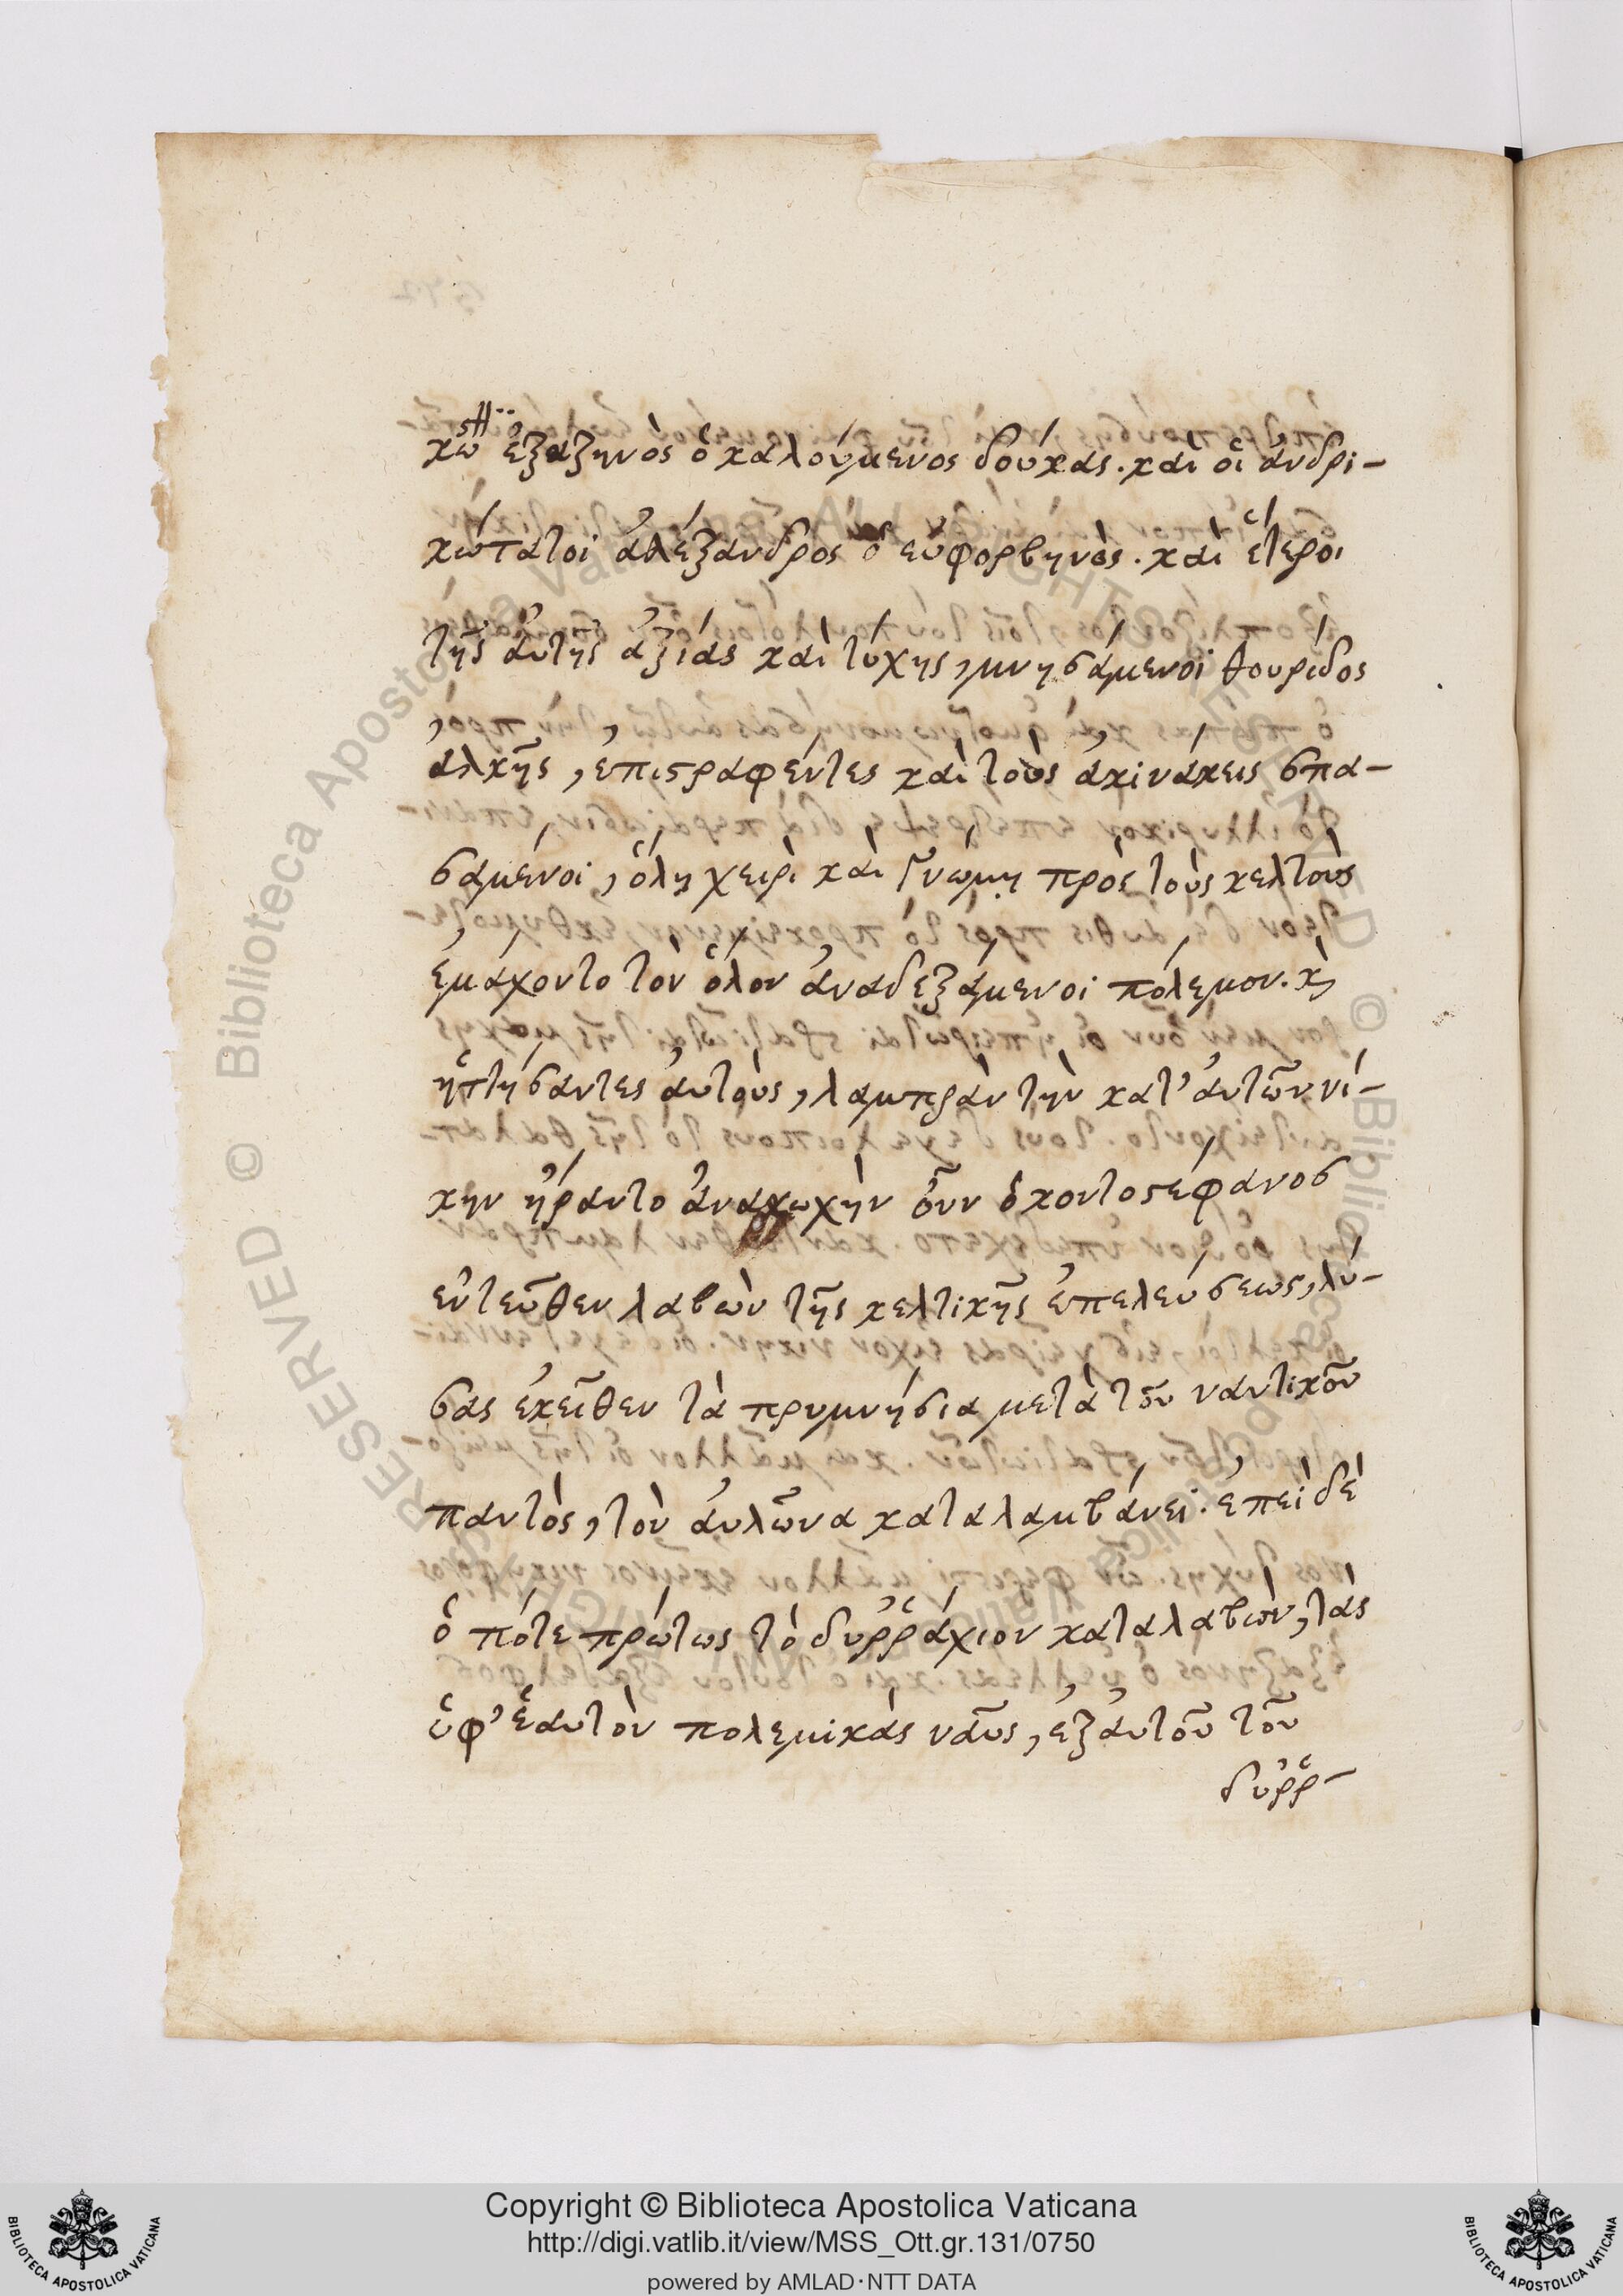 κωστ ἐξαζηνὸς ὁ καλούμενος δούκας. καὶ οἱ ἀνδρι-
κώτατοι ἀλέξανδρος ὁ εὐφορβηνὸς. καὶ ἕτεροι
τῆς ἀυτῆς ἀξίας καὶ τύχης, μνησάμενοι θουρίδος
ἀλκῆς, ἐπιστραφέντες καὶ τοὺς ἀκινάκεις σπα-
σαμένοι, ὅλῃ χειρὶ καὶ γνώμῃ πρὸς τοὺς κελτοὺς
ἐμάχοντο τὸν ὅλον ἀναδεξάμενοι πόλεμον. κὶ
ἡττήσαντες ἀυτοὺς, λαμπρὰν τὴν κατ' ἀυτῶν νί-
κην ἤραντο ἀνακωχὴν οὖν ὁ κοντοστέφανος
ἐντεῦθεν λαβὼν τῆς κελτικῆς ἐπελεύσεως, λύ-
σας ἐκεῖθεν τὰ πρυμνήσια μετὰ τοῦ ναυτικοῦ
παντὸς, τὸν ἀυλῶνα καταλαμβάνει. ἐπεὶ δὲ
ὁ πότε πρώτως τὸ δυῤῥάχιον καταλαβὼν, τὰς
ὑφ' ἑαυτὸν πολεμικὰς ναῦς, ἐξ ἀυτοῦ τοῦ
δυῤῥ-
Copyright © Biblioteca Apostolica Vaticana
http://digi.vatlib.it/view/MSS_Ott.gr.131/0750
powered by AMLAD·NTT DATA
BIBLIOTECA APOSTOLICA VATICANA
BIBLIOTECA APOSTOLICA VATICANA